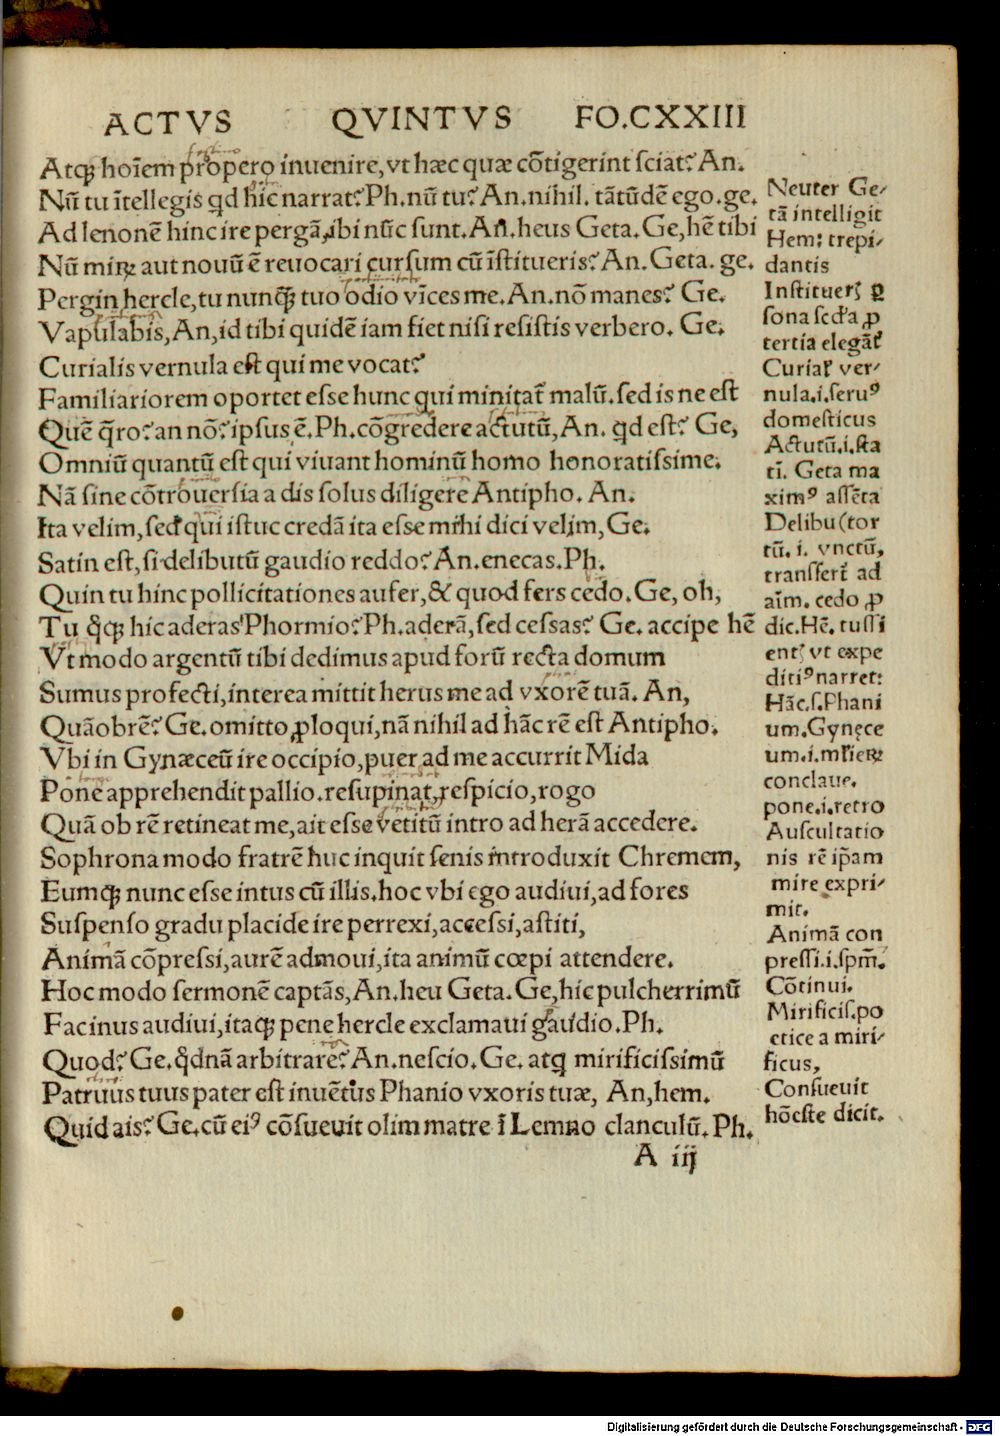 ACTVS QVINTVS FO.CXXIII
Atqꝫ hoīem propero inuenire,vt hæc quæ cōtigerint sciat? An.
Nū tu ītellegis qd hic narrat? Ph.nū tu? An.nihil. tātūdē ego.ge.
Ad lenonē hinc ire pergā,ibi nūc sunt.An.heus Geta.Ge,hē tibi
Nū miꝝ aut nouū ē reuocari cursum cū īstitueris? An.Geta.ge.
Pergin hercle,tu nunqꝫ tuo odio vīces me.An.nō manes? Ge.
Vapulabis,An,id tibi quidē iam fiet nisi resistis verbero. Ge.
Curialis vernula est qui me vocat?
Familiariorem oportet esse hunc qui minitat̄ malū.sed is ne est
Quē q̄ro? an nō? ipsus ē.Ph.cōgredere actutū,An. qd est? Ge,
Omniū quantū est qui viuant hominū homo honoratissime.
Nā sine cōtrouersia a dis solus diligere Antipho. An.
Ita velim,sed qui istuc credā ita esse mihi dici velim,Ge.
Satin est,si delibutū gaudio reddo? An.enecas.Ph.
Quin tu hinc pollicitationes aufer,& quod fers cedo.Ge, oh,
Tu q̊qꝫ hic aderas Phormio? Ph.aderā,sed cessas? Ge. accipe hē
Vt modo argentū tibi dedimus apud forū recta domum
Sumus profecti,interea mittit herus me ad vxorē tuā. An,
Quāobrē? Ge.omitto ꝓloqui,nā nihil ad hāc rē est Antipho.
Vbi in Gynæceū ire occipio,puer ad me accurrit Mida
Pone apprehendit pallio.resupinat,respicio,rogo
Quā ob rē retineat me,ait esse vetitū intro ad herā accedere.
Sophrona modo fratrē huc inquit senis introduxit Chremem,
Eumqꝫ nunc esse intus cū illis.hoc vbi ego audiui,ad fores
Suspenso gradu placide ire perrexi,accessi,astiti,
Animā cōpressi,aurē admoui,ita animū cœpi attendere.
Hoc modo sermonē captās,An.heu Geta.Ge,hic pulcherrimū
Facinus audiui,itaqꝫ pene hercle exclamaui gaudio.Ph.
Quod? Ge.q̊dnā arbitrare? An.nescio.Ge. atqꝫ mirificissimū
Patruus tuus pater est inuētus Phanio vxoris tuæ, An,hem.
Quid ais? Ge.cū eiꝰ cōsueuit olim matre ī Lemno clanculū.Ph.
A iij
Neuter Ge⸗
tā intelligit
Hem: trepi⸗
dantis
Instituer̄ ꝑ
sona scd'a ꝓ
tertia elegāt̄
Curial' ver⸗
nula.i.seruꝰ
domesticus
Actutū.i.sta
tī. Geta ma
ximꝰ assēta
Delibu(tor
tū.i. vnctū,
transfert̄ ad
aīm. cedo ꝓ
dic.Hē.tussi
ent̄ vt expe
ditiꝰ narret:
Hāc.s.Phani
um.Gynęce
um.i.mr̄ieꝝ
conclaue.
pone.i.retro
Auscultatio
nis rē ip̄am
mire expri⸗
mit.
Animā con
pressi.i.spm̄.
Cōtinui.
Mirificis.po
etice a miri⸗
ficus,
Consueuit
hōeste dicit.
Digitalisierung gefördert durch die Deutsche Forschungsgemeinschaft - DFG